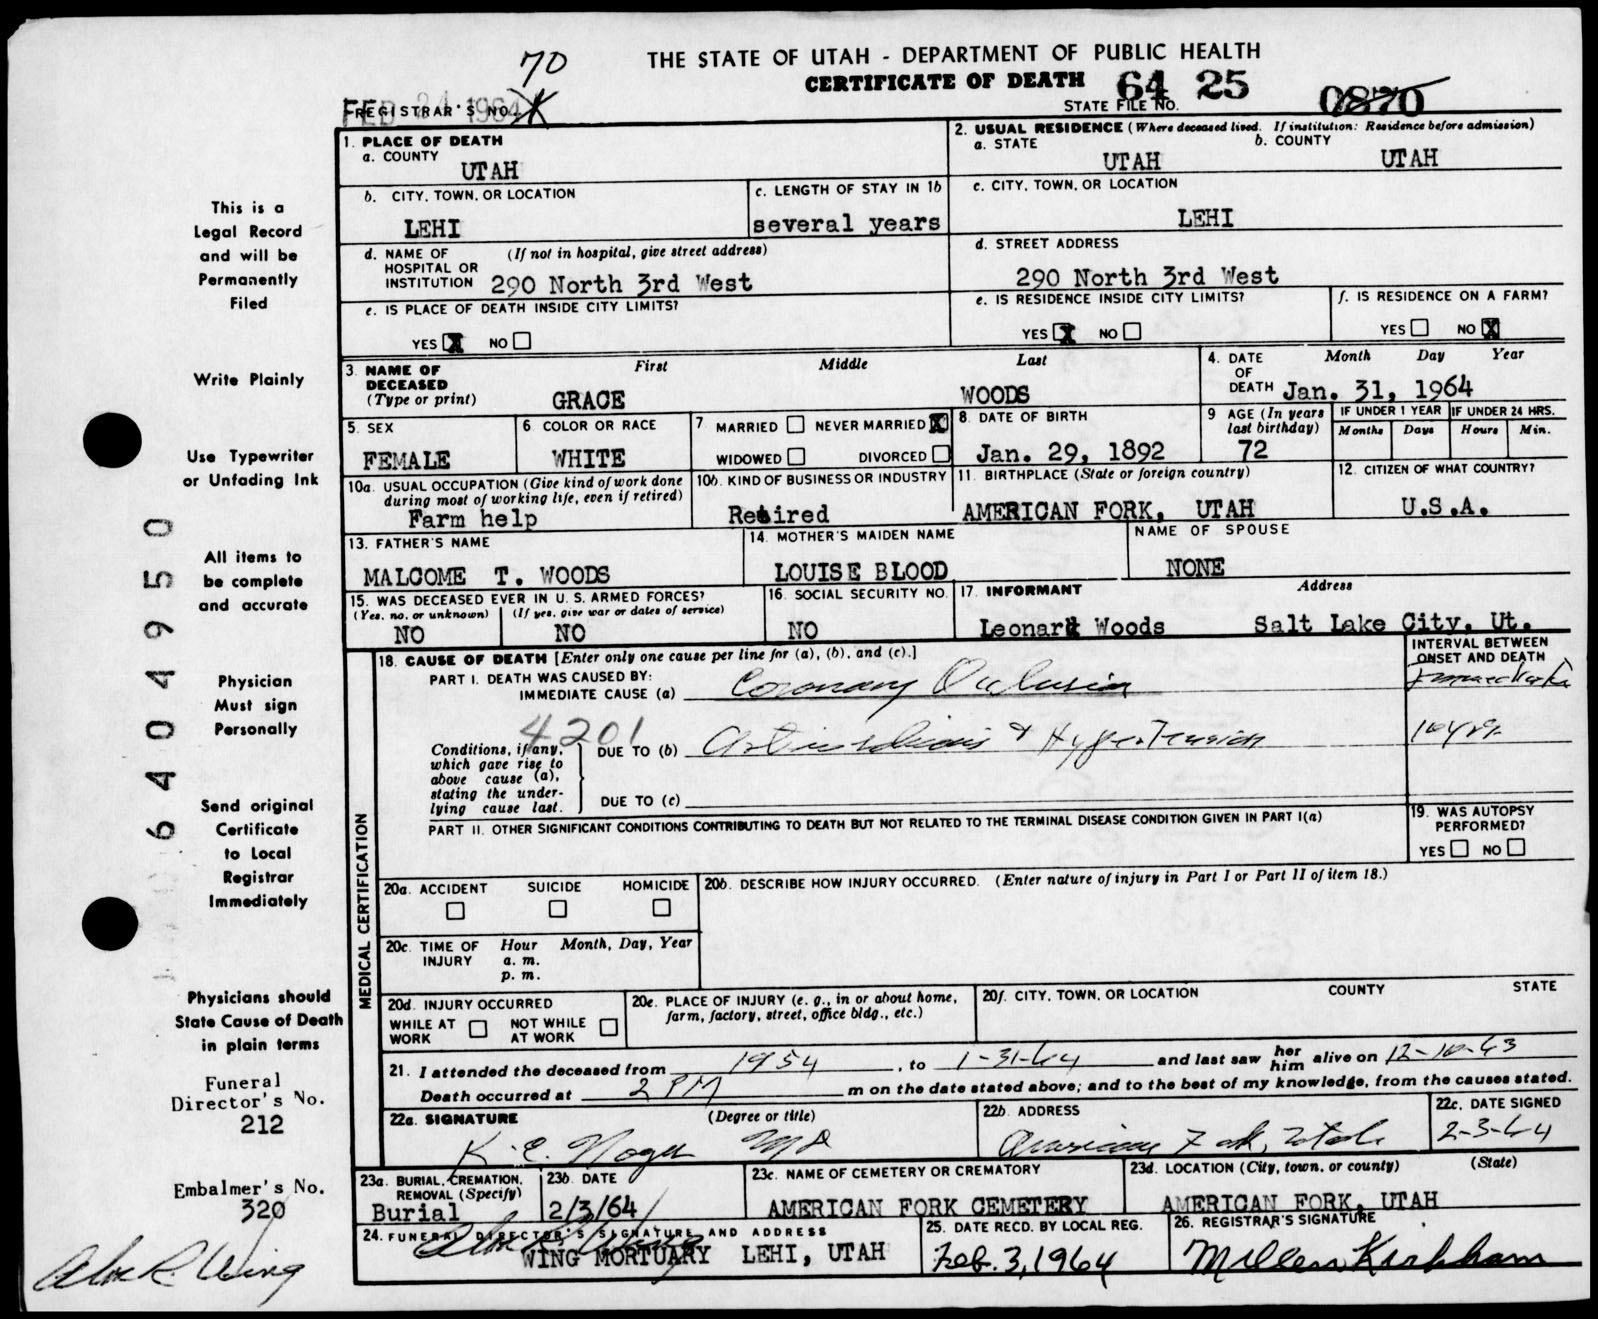 70
THE STATE OF UTAH - DEPARTMENT OF PUBLIC HEALTH
CERTIFICATE OF DEATH 64 25 0870
FEB 24 1964 REGISTRAR'S NO. STATE FILE NO.
1. PLACE OF DEATH
a. COUNTY
UTAH
2. USUAL RESIDENCE (Where deceased lived. If institution: Residence before admission)
a. STATE b. COUNTY
UTAH UTAH
b. CITY, TOWN, OR LOCATION
LEHI
c. LENGTH OF STAY IN 1b
several years
c. CITY, TOWN, OR LOCATION
LEHI
d. NAME OF HOSPITAL OR INSTITUTION (If not in hospital, give street address)
290 North 3rd West
d. STREET ADDRESS
290 North 3rd West
e. IS PLACE OF DEATH INSIDE CITY LIMITS?
YES X NO
e. IS RESIDENCE INSIDE CITY LIMITS?
YES X NO
f. IS RESIDENCE ON A FARM?
YES NO X
3. NAME OF DECEASED (Type or print) First Middle Last
GRACE WOODS
4. DATE OF DEATH Month Day Year
Jan. 31, 1964
5. SEX
FEMALE
6. COLOR OR RACE
WHITE
7 MARRIED NEVER MARRIED X
WIDOWED DIVORCED
8. DATE OF BIRTH
Jan. 29, 1892
9 AGE (In years last birthday)
72
IF UNDER 1 YEAR IF UNDER 24 HRS.
Months Days Hours Min.
10a. USUAL OCCUPATION (Give kind of work done during most of working life, even if retired)
Farm help
10b. KIND OF BUSINESS OR INDUSTRY
Retired
11. BIRTHPLACE (State or foreign country)
AMERICAN FORK, UTAH
12. CITIZEN OF WHAT COUNTRY?
U.S.A.
13. FATHER'S NAME
MALCOME T. WOODS
14. MOTHER'S MAIDEN NAME
LOUISE BLOOD
NAME OF SPOUSE
NONE
15. WAS DECEASED EVER IN U. S. ARMED FORCES?
(Yes, no, or unknown) (If yes, give war or dates of service)
NO NO
16. SOCIAL SECURITY NO.
NO
17. INFORMANT Address
Leonard Woods Salt Lake City, Ut.
MEDICAL CERTIFICATION
18. CAUSE OF DEATH [Enter only one cause per line for (a), (b), and (c).]
INTERVAL BETWEEN ONSET AND DEATH
PART I. DEATH WAS CAUSED BY:
IMMEDIATE CAUSE (a) Coronary Occlusion
4201
Conditions, if any, which gave rise to above cause (a), stating the underlying cause last.
DUE TO (b) & Hypertension 10 yrs.
DUE TO (c)
PART II. OTHER SIGNIFICANT CONDITIONS CONTRIBUTING TO DEATH BUT NOT RELATED TO THE TERMINAL DISEASE CONDITION GIVEN IN PART I(a)
19. WAS AUTOPSY PERFORMED?
YES NO
20a. ACCIDENT SUICIDE HOMICIDE
20b. DESCRIBE HOW INJURY OCCURRED. (Enter nature of injury in Part I or Part II of item 18.)
20c. TIME OF INJURY Hour Month, Day, Year
a. m.
p. m.
20d. INJURY OCCURRED
WHILE AT WORK NOT WHILE AT WORK
20e. PLACE OF INJURY (e. g., in or about home, farm, factory, street, office bldg., etc.)
20f. CITY, TOWN, OR LOCATION COUNTY STATE
21. I attended the deceased from 1954, to 1-31-64 and last saw her him alive on 12-10-63
Death occurred at 2 PM m on the date stated above; and to the best of my knowledge, from the causes stated.
22a. SIGNATURE (Degree or title)
K. E. MD
22b. ADDRESS
American Fork, Utah
22c. DATE SIGNED
2-3-64
23a. BURIAL, CREMATION, REMOVAL (Specify)
Burial
23b. DATE
2/3/64
23c. NAME OF CEMETERY OR CREMATORY
AMERICAN FORK CEMETERY
23d. LOCATION (City, town, or county) (State)
AMERICAN FORK, UTAH
24. FUNERAL DIRECTOR'S SIGNATURE AND ADDRESS
WING MORTUARY LEHI, UTAH
25. DATE RECD. BY LOCAL REG.
Feb. 3, 1964
26. REGISTRAR'S SIGNATURE
Kirkham
This is a
Legal Record
and will be
Permanently
Filed
Write Plainly
Use Typewriter
or Unfading Ink
All items to
be complete
and accurate
Physician
Must sign
Personally
Send original
Certificate
to Local
Registrar
Immediately
Physicians should
State Cause of Death
in plain terms
Funeral
Director's No.
212
Embalmer's No.
320
Wing
6404950